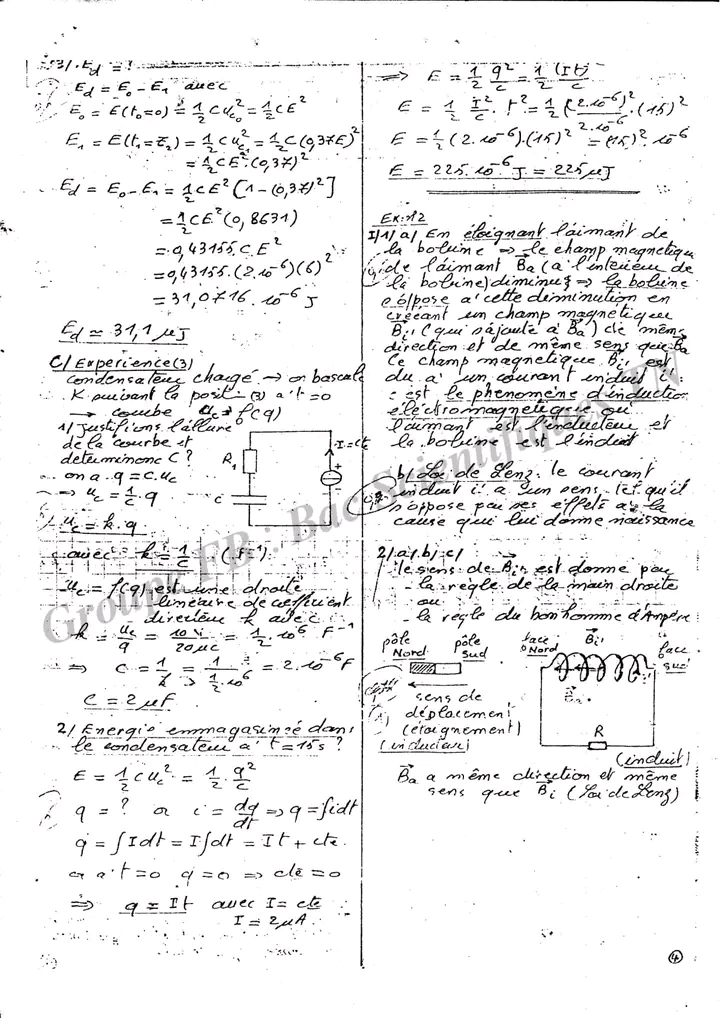 3/. Ed = ?
Ed = E0 - E1 avec
E0 = E(t0=0) = 1/2 C uc0² = 1/2 CE²
E1 = E(t1=τ2) = 1/2 C uc1² = 1/2 C(0,37E)²
= 1/2 CE² (0,37)²
Ed = E0 - E1 = 1/2 CE² [1-(0,37)²]
= 1/2 CE² (0,8631)
= 0,43155. C. E²
= 0,43155. (2.10⁻⁶)(6)²
= 31,0716. 10⁻⁶ J
Ed ≃ 31,1 µJ
C/ Expérience(3)
condensateur chargé → on bascule
K suivant la posit: (3) a't=0
→ courbe uc = f(q)
1/ Justifions l'allure
de la courbe et
determinons C ?
on a. q = C.uc
⇒ uc = 1/c . q
uc = k. q
avec k = 1/c (F⁻¹)
uc = f(q) est une droite
linéaire de coefficient
directeur k avec
k = uc/q = 10 V/20µC = 1/2 .10⁶ F⁻¹
⇒ C = 1/k = 1/(1/2 .10⁶) = 2.10⁻⁶F
C = 2µF
2/ Energie emmagasinée dans
le condensateur a' t=15s ?
E = 1/2 C uc² = 1/2 . q²/c
q = ? or i = dq/dt ⇒ q = ∫idt
q = ∫Idt = I∫dt = It + cte.
or a't=0 q=0 ⇒ cte=0
⇒ q = It avec I = cte
I = 2µA
R1
C
I = cte
⇒ E = 1/2 q²/c = 1/2 (It)²/c
E = 1/2 I²/c . t² = 1/2 (2.10⁻⁶)²/2.10⁻⁶ . (15)²
E = 1/2 (2.10⁻⁶).(15)² = (15)². 10⁻⁶
E = 225.10⁻⁶ J = 225 µJ
Ex: n°2
I/1/a/ En éloignant l'aimant de
la bobine ⇒ le champ magnetique
de l'aimant Ba (a l'intérieur de
la bobine) diminue ⇒ la bobine
s'oppose a' cette diminution en
créeant un champ magnétique
Bi (qui s'ajoute a' Ba) de même
direction et de même sens que Ba
Ce champ magnetique Bi est
du a' un courant induit i:
c'est le phenomène d'induction
électromagnetique où
l'aimant est l'inducteur et
la bobine est l'induit
b/ Loi de Lenz: le courant
induit i a un sens tel qu'il
s'oppose par ses effets a' la
cause qui lui donne naissance
2/a/b/c/
le sens de Bi est donné par
- la regle de la main droite
ou
- la regle du bonhomme d'Ampère
pôle Nord
pôle Sud
face Nord
Bi
face sud
Ba
sens de
déplacement
(éloignement)
(inducteur)
R
(induit)
Ba a même direction et même
sens que Bi (Loi de Lenz)
4
Groupe FB : Bac Scientifiques TN